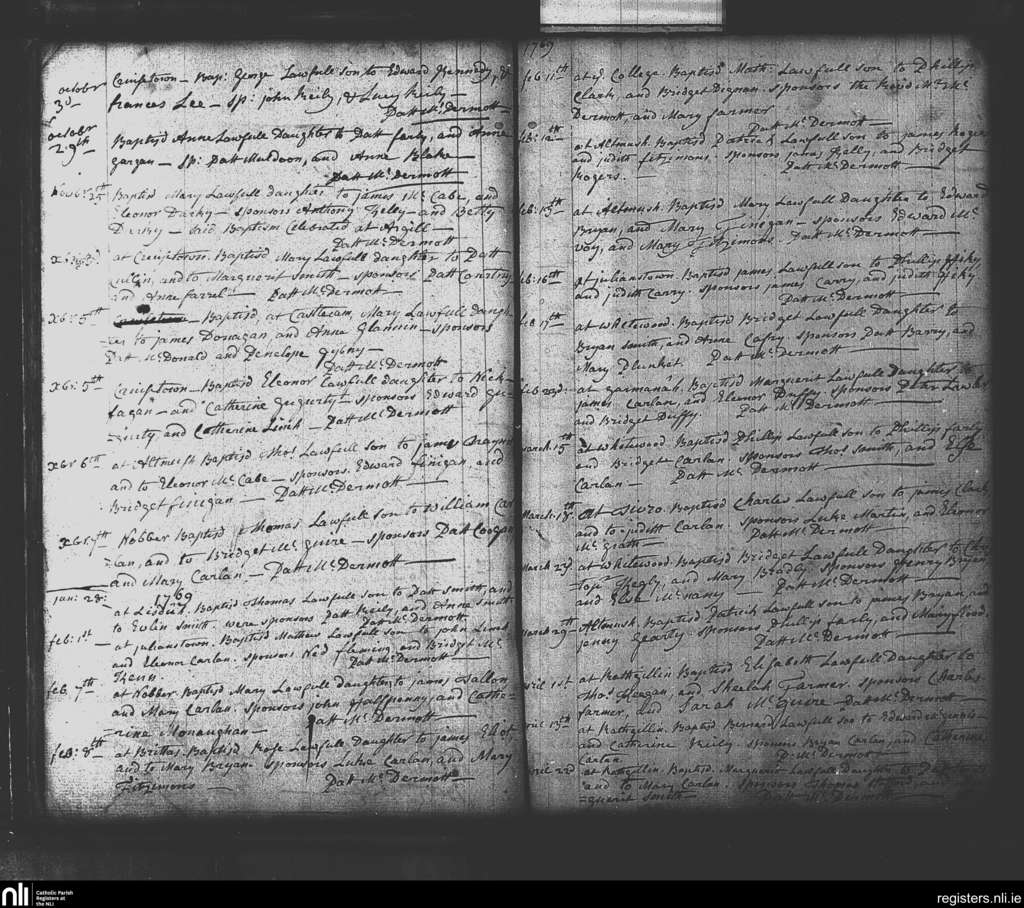 october 3d Cruisetown - Bap: George Lawfull son to Edward Kennedy, &
frances Lee - Sp: john Reily, & Lucy Reily -
Patt Mc Dermott
october 29th Baptisd Anne Lawfull Daughter to Patt farly, and Anne
gargan - Sp: Patt Muldoon, and Anne Blake -
Patt Mc Dermott
Baptisd Mary Lawfull daughter to james Mc Cabe, and
Eleonor Darky - sponsors Anthony Kelly - and Betty
said Baptism Celebrated at Argill -
Patt Mc Dermott
at Cruisetown. Baptisd Mary Lawfull daughter to Patt
and to Marguerit Smith - sponsors Patt
and Anne farrel - Patt Mc Dermott -
Xbr: 5th - Baptisd, at Castlecam, Mary Lawfull daugh-
ter to james Donagan and Anne Glannin - sponsors
Patt Mc Donald and Penelope
Patt Mc Dermott
Xbr: 5th Cruisetown - Baptisd Eleonor Lawfull daughter to Nick-
Fagan - and Catherine Gegurty - sponsors Edward Ge-
=gurty and Catherine - Patt Mc Dermott
Xbr 6th at Altmush Baptisd Thos Lawfull son to james
and to Eleonor Mc Cabe - sponsors. Edward finigan, and
Bridget finigan - Patt Mc Dermott -
Xbr: 7th Nobber Baptisd Thomas Lawfull son to William Car
=lan, and to Bridget Mc guire - sponsors Patt Coogan
and Mary Carlan - Patt Mc Dermott -
1769
jan: 28: at Baptisd Thomas Lawfull son to Patt smith, and
to Evlin smith. were sponsors Patt Reily, and Anne Smith
Patt Mc Dermott
feb: 1st at julianstown. Baptisd Mathew Lawfull son to john
and Eleonor Carlan. sponsors Ned flaming and Bridget Mc
Patt Mc Dermott -
feb. 7th at Nobber Baptisd Mary Lawfull daughter to james fallon
and Mary Carlan. sponsors john Halfpenny, and Cathe-
=rine Monaughan -
Patt Mc Dermott -
feb: 8th at Brittas Baptisd Rose Lawfull Daughter to james Eliot
and to Mary Bryan sponsors Luke Carlan, and Mary
Fitzimons -
Patt Mc Dermott -
1769
feb 11th at ye College Baptisd Math: Lawfull son to Phillip
Clark, and Bridget Dignan. sponsors the Revd Mr Mc
Dermott, and Mary farmer
Patt Mc Dermott -
feb: 12th at Altmush Baptisd Patrick Lawfull son to james Rogers
and judith fitzimons. sponsors james Kally, and Bridget
Rogers. -
Patt Mc Dermott -
feb: 15th at Altmush Baptisd Mary Lawfull Daughter to Edward
Bryan, and Mary Finegan - sponsors Edward Mc
voy, and Mary Fitzimons Patt Mc Dermott -
feb: 16th at julianstown. Baptisd james Lawfull son to Phillip
and judith Carry. sponsors james Carry, and judith
Patt Mc Dermott -
feb 17th at whitewood. Baptisd Bridget Lawfull Daughter to
Bryan smith, and Anne Cafry. sponsors Patt Barry, and
Mary Plunket. Patt Mc Dermott -
feb 22d. at Baptisd Marguerit Lawfull Daughter to
james Carlan, and Eleonor Duffy. sponsors Peter Lawler
and Bridget Duffy. Patt Mc Dermott -
march 15th at whitewood Baptisd Phillip Lawfull son to Phillip farly
and Bridget Carlan. sponsors Thos Smith, and Else
Carlan - Patt Mc Dermott -
March: 18th Baptisd Charles Lawfull son to james Clark
and to judith Carlan. sponsors Luke Martin, and Eleonor
Mc Grath -
Patt Mc Dermott -
March 23d at whitewood Baptisd Bridget Lawfull Daughter to Chris
and Mary Brady. sponsors Henry Bryan
and Else Mc nany - Patt Mc Dermott -
March 29th Altmush. Baptisd Patrick Lawfull son to james Bryan, and
jenny Gearty. sponsors Phillip farly, and Mary
Patt Mc Dermott -
april 1st at Rathgillin Baptisd Elizabeth Lawfull Daughter to
Thos Heagan, and Sheelah Farmer. sponsors Charles
farmer, and Sarah Mc Guire - Patt Mc Dermott
april 13th at Rathgillin. Baptisd Bernard Lawfull son to Edward
and Catherine Reily. sponsors Bryan Carlan, and Catherine
Carlan
P. Mc Dermott -
april 22d at Rathgillin. Baptisd. Marguerit Lawfull Daughter to
and to Mary Carlan. sponsors Thomas
=guerit Smith - Patt Mc Dermott -
nli
Catholic Parish
Registers at
the NLI
registers.nli.ie